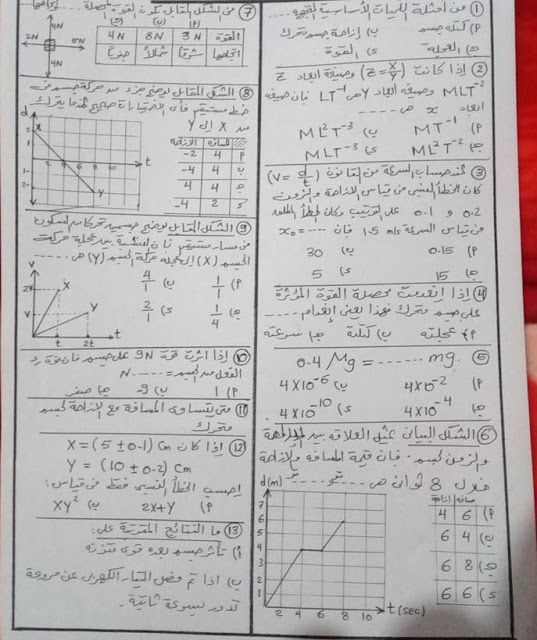 ① من أمثلة الكميات الأساسية
أ) كتلة جسم ب) إزاحة جسم متحرك
ج) العجلة د) القوة
② إذا كانت (Z = X/Y) وصيغة أبعاد Z
MLT⁻² وصيغة أبعاد Y هى LT⁻¹ فإن صيغة
أبعاد x هى ....
أ) MT⁻¹ ب) ML²T⁻³
ج) ML²T⁻² د) MLT⁻³
③ لحساب السرعة من القانون (V = d/t)
كان الخطأ النسبى فى قياس الإزاحة والزمن
0.2 و 0.1 على الترتيب وكان الخطأ المطلق
فى قياس السرعة 1.5 m/s فإن
أ) 0.15 ب) 30
ج) 15 د) 5
④ إذا انعدمت محصلة القوة المؤثرة
على جسم متحرك فهذا يعنى انعدام ......
أ) عجلته ب) كتلته ج) سرعته
⑤ 0.4 Mg = ...... mg
أ) 4X10⁻² ب) 4X10⁻⁶
ج) 4X10⁻⁴ د) 4X10⁻¹⁰
⑥ الشكل البيانى يمثل العلاقة بين الإزاحة
والزمن لجسم فإن قيمة المسافة والإزاحة
خلال 8 ثوان هى
مسافة إزاحة
أ) 6 4
ب) 4 6
ج) 8 6
د) 6 6
d(m)
7
6
5
4
3
2
1
2 4 6 8 10
t(sec)
⑦ من الشكل المقابل تكون القوة المحصلة
4N
2N 5N
4N
القوة 3N 8N 4N
اتجاهها شرقاً شمالاً جنوباً
⑧ الشكل المقابل يوضح جزء من حركة جسم فى
خط مستقيم فأى الاختيارات صحيح عندما يتحرك
من X إلى Y
المسافة الإزاحة
أ 4 -2
ب 4 -4
ج 4 4
د 2 -4
d
X
Y
t
⑨ الشكل المقابل يوضح جسمين تحركا من السكون
فى مسار مستقيم فإن النسبة بين عجلة حركة
الجسم (X) إلى عجلة حركة الجسم (Y) هى ....
أ) 1/1 ب) 4/1
ج) 1/4 د) 2/1
V
2V
V
X
Y
t 2t
t
⑩ إذا أثرت قوة 9N على جسم فإن قوة رد
الفعل من الجسم = ...... N
أ) 1 ب) -9 ج) صفر
⑪ متى تتساوى المسافة مع الإزاحة لجسم
متحرك
⑫ إذا كان X = (5 ± 0.1) Cm
Y = (10 ± 0.2) Cm
احسب الخطأ النسبى فقط فى قياس :
أ) 2X+Y ب) XY²
⑬ ما النتائج المترتبة على :
أ) تأثر جسم بعدة قوى متزنة
ب) إذا تم فصل التيار الكهربى عن مروحة
تدور بسرعة ثابتة .